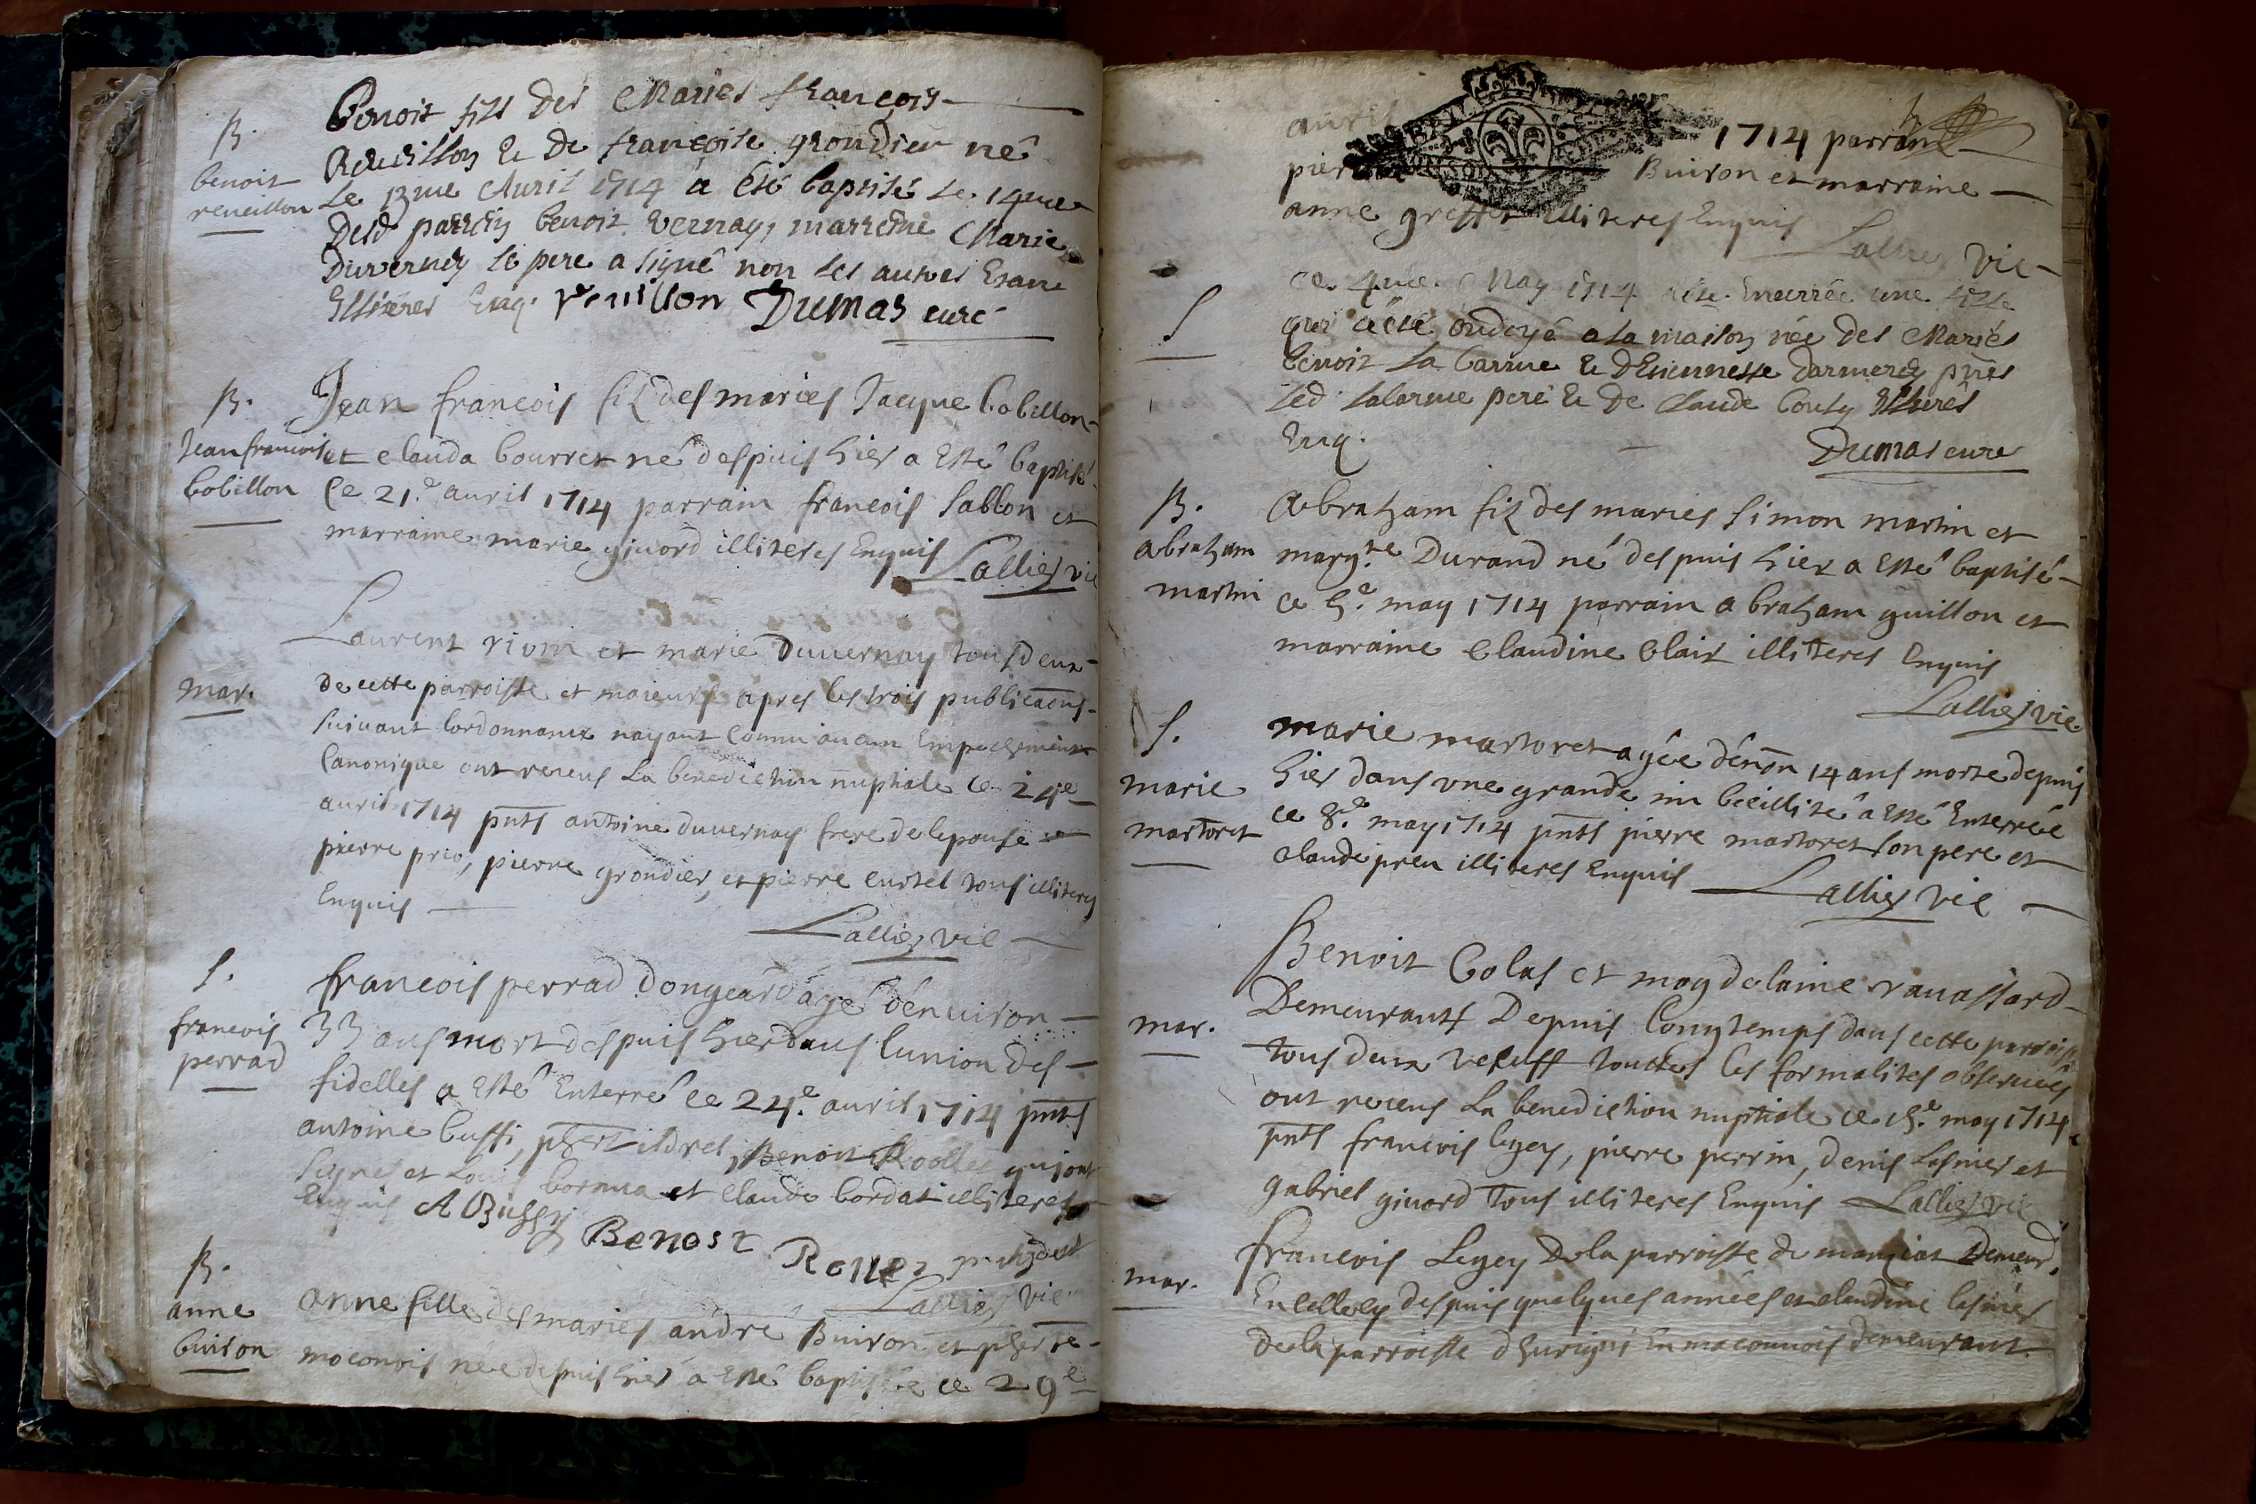 B.
benoit
reueillon
Benoit fils des Mariés françois
Reueillon & de françoise grondier né
Le 13me Auril 1714 a été baptisé le 14me
Desd parrein benoit vernay, marreine Marie
Duverney le pere a signé non les autres
Illiteres Enq. reuillon Dumas curé
B.
Jean francois
bobillon
Jean francois fil des mariés Jacque bobillon
et clauda bourret né despuis hier a Esté baptisé
ce 21.e auril 1714 parrain francois sablon et
marraine marie giuord illiteres Enquis Lallier vic
mar.
Laurent et marie Duuernay tous deux
de cette parroisse et maieurs apres les trois publicaons
suiuant lordonnance nayant connu aucun Empeschement
Canonique ont receus La benediction nuptiale ce 24e
auril 1714 pnts antoine duuernay frere de lepouse et
pierre prio, pierre grondier, et pierre curtel tous illiteres
Enquis
Lallier vic
S.
francois
perrad
francois perrad dongeard agé d'enuiron
33 ans mort despuis hier dans lunion des
fidelles a Esté Enterré ce 24.e auril 1714 pnts
antoine bussi, Benoit qui ont
signes et Louis et Claude bordat illiteres
Enquis A Bussy Benoit Roller
Lallier vic
B.
anne
buiron
anne fille des mariés andré Buiron et
moconois née depuis hier a Esté baptisée ce 29e
auril 1714 parrain
pierre Buiron et marraine
anne greffet illiteres Enquis
Lallier vic
S
ce 4me May 1714 a este enterrée une fille
qui a été ondoyé a la maison née des Mariés
benoit La barme & dEstiennette darmerey pnts
Led labarme pere & de Claude bouly Illiterés
Enq.
Dumas cure
B.
abraham
martin
Abraham fil des mariés simon martin et
margte. Durand né despuis hier a Esté baptisé
ce 5.e may 1714 parrain abraham guillon et
marraine claudine clair illiteres Enquis
Lallier vic.
S.
marie
martoret
marie martoret agée dénon 14 ans morte depuis
hier dans vne grande imbecillité a Esté Enterrée
ce 8.e may 1714 pnts pierre martoret son pere et
claude preu illiteres Enquis Lallier vic
mar.
Benoit Colas et magdelaine rauassard
Demeurants Depuis longtemps dans cette parroisse
tous deux vefuss touttes les formalites obseruees
ont receus La benediction nuptiale ce 15.e may 1714
pnts francois legey, pierre perrin, denis lasnier et
gabriel giuord tous illiteres Enquis Lallier vic
mar.
francois Legey De la parroisse de manziat Demeur.
En celle cy despuis quelques années et claudine lasnier
de la parroisse dhurigni En maconnois demeurant